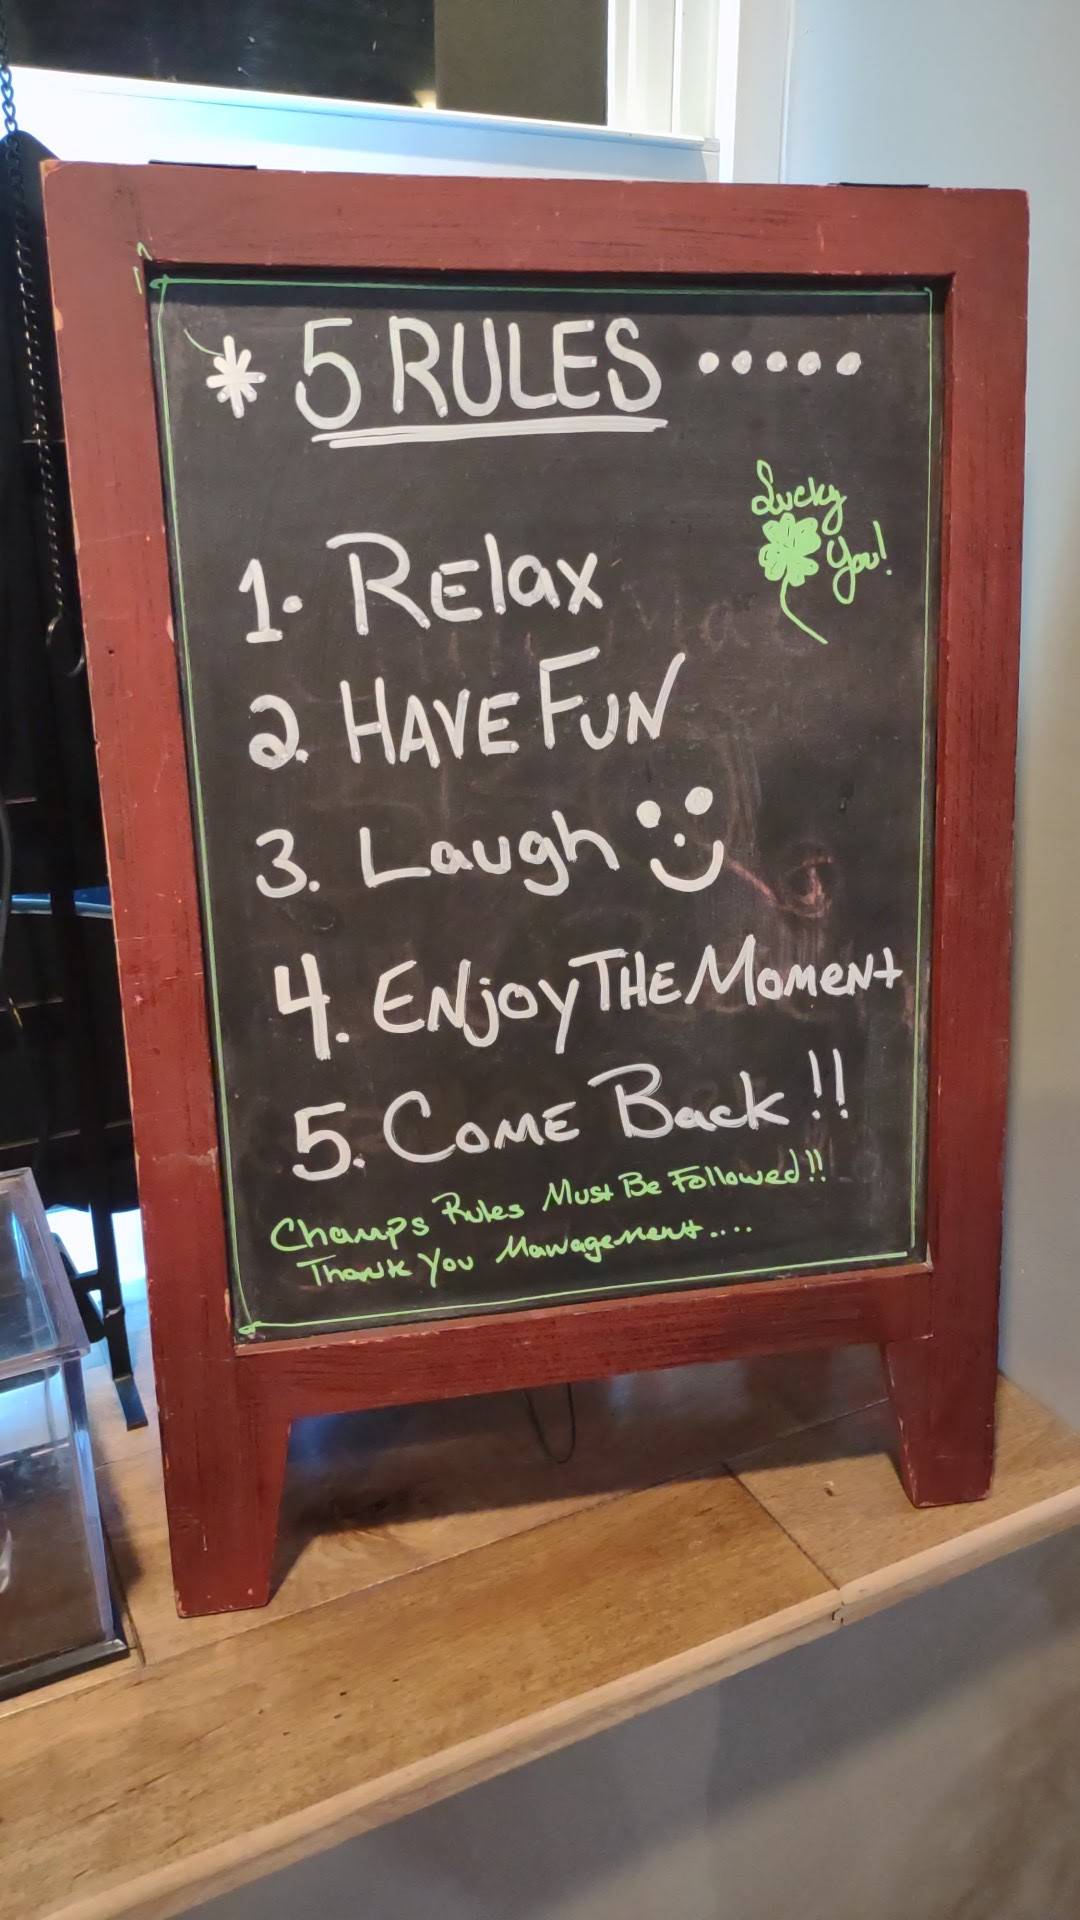 * 5 RULES .....
Lucky
You!
1. Relax
2. HAVE FUN
3. Laugh
4. ENjoy THE MOMENt
5. COME Back!!
Champs Rules Must Be Followed!!
Thank You Management....